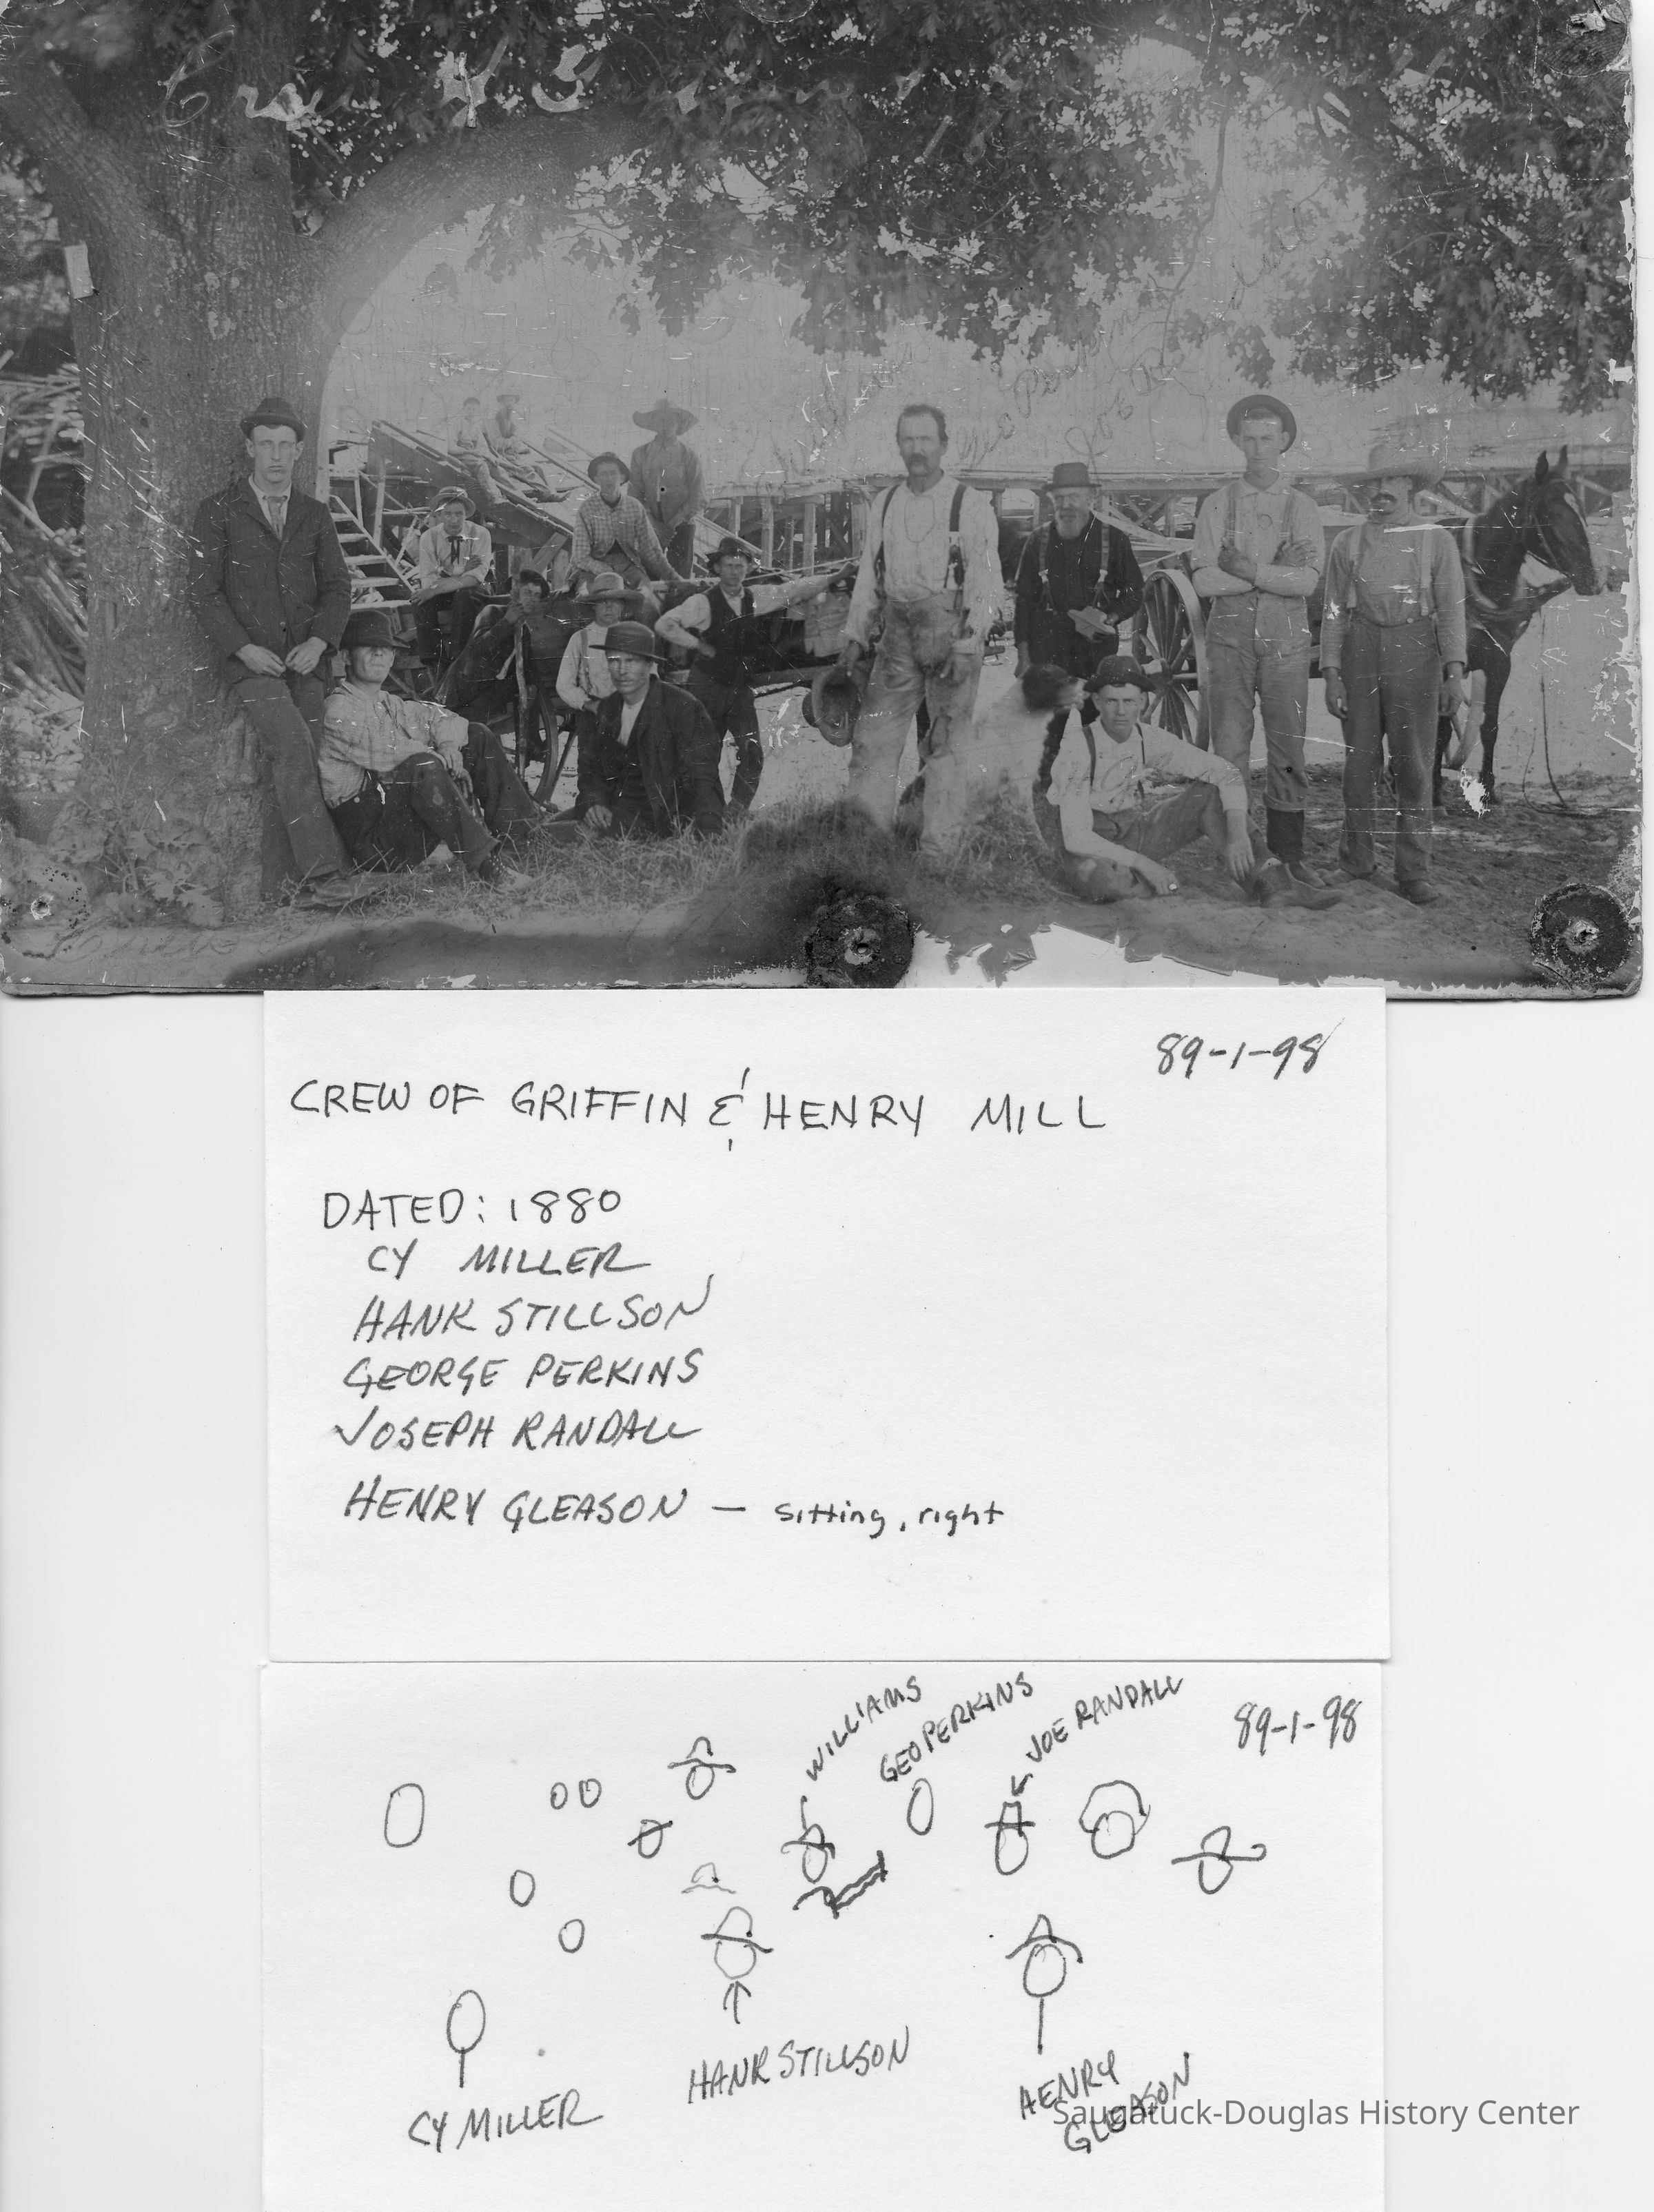 Crew of
Williams
Geo Perkins
Joe Randall
89-1-98
CREW OF GRIFFIN & HENRY MILL
DATED: 1880
CY MILLER
HANK STILLSON
GEORGE PERKINS
JOSEPH RANDALL
HENRY GLEASON — sitting, right
WILLIAMS
GEO PERKINS
JOE RANDALL
89-1-98
HANK STILLSON
CY MILLER
HENRY
GLEASON
Saugatuck-Douglas History Center